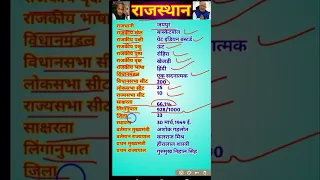 राजस्थान
राजधानी जयपुर
राजकीय खेल बास्केटबॉल
राजकीय पक्षी ग्रेट इंडियन बस्टर्ड
राजकीय पशु ऊंट
राजकीय पुष्प रोहिड़ा
राजकीय वृक्ष खेजड़ी
राजकीय भाषा हिंदी
विधानमंडल एक सदनात्मक
विधानसभा सीट 200
लोकसभा सीट 25
राज्यसभा सीट 10
साक्षरता 66.1%
लिंगानुपात 928/1000
जिला 33
स्थापना 30 मार्च, 1949 ई.
वर्तमान मुख्यमंत्री अशोक गहलोत
वर्तमान राज्यपाल कलराज मिश्र
प्रथम मुख्यमंत्री हीरालाल शास्त्री
प्रथम राज्यपाल गुरुमुख निहाल सिंह